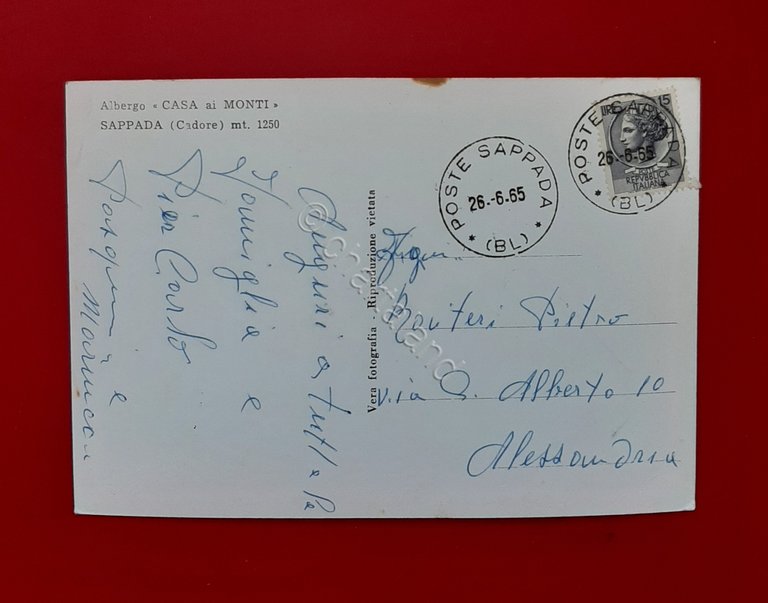 Albergo « CASA ai MONTI »
SAPPADA (Cadore) mt. 1250
Auguri a tutta la
Famiglia e
Pier Carlo
e
Vera fotografia - Riproduzione vietata
POSTE SAPPADA
26.-6.65
(BL)
POSTE SAPPADA
26.-6.65
(BL)
LIRE 15
REPVBBLICA
ITALIANA
Pietro
via S. Alberto 10
Alessandria